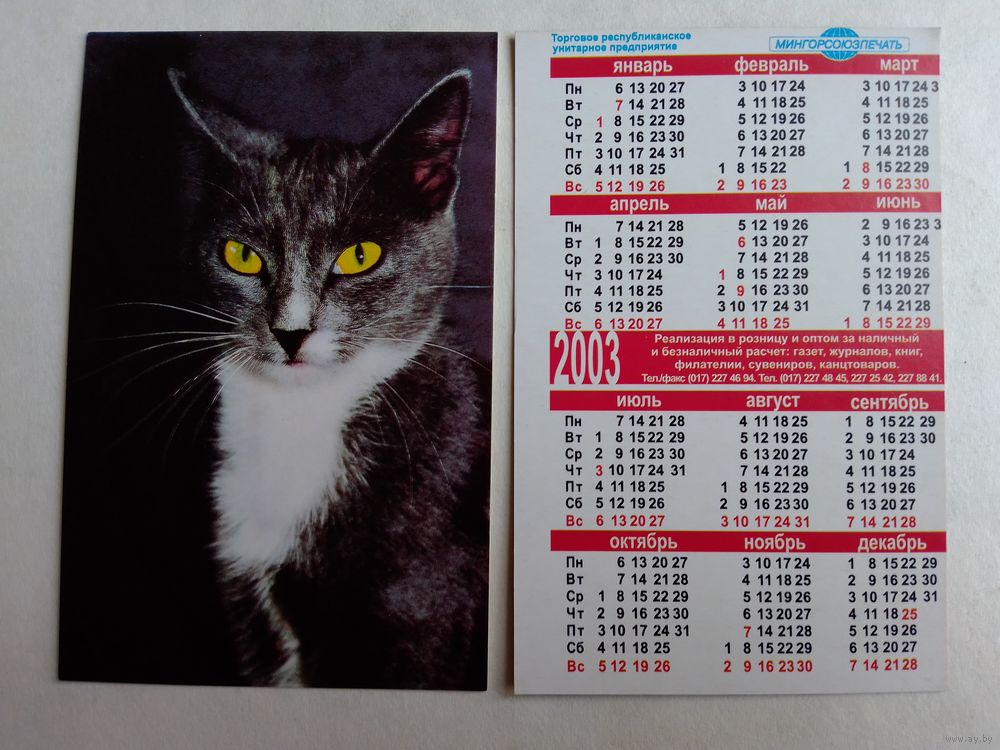 Торговое республиканское
унитарное предприятие
МИНГОРСОЮЗПЕЧАТЬ
январь февраль март
Пн 6 13 20 27 3 10 17 24 3 10 17 24 3
Вт 7 14 21 28 4 11 18 25 4 11 18 25
Ср 1 8 15 22 29 5 12 19 26 5 12 19 26
Чт 2 9 16 23 30 6 13 20 27 6 13 20 27
Пт 3 10 17 24 31 7 14 21 28 7 14 21 28
Сб 4 11 18 25 1 8 15 22 1 8 15 22 29
Вс 5 12 19 26 2 9 16 23 2 9 16 23 30
апрель май июнь
Пн 7 14 21 28 5 12 19 26 2 9 16 23 3
Вт 1 8 15 22 29 6 13 20 27 3 10 17 24
Ср 2 9 16 23 30 7 14 21 28 4 11 18 25
Чт 3 10 17 24 1 8 15 22 29 5 12 19 26
Пт 4 11 18 25 2 9 16 23 30 6 13 20 27
Сб 5 12 19 26 3 10 17 24 31 7 14 21 28
Вс 6 13 20 27 4 11 18 25 1 8 15 22 29
2003
Реализация в розницу и оптом за наличный
и безналичный расчет: газет, журналов, книг,
филателии, сувениров, канцтоваров.
Тел./факс (017) 227 46 94. Тел. (017) 227 48 45, 227 25 42, 227 88 41.
июль август сентябрь
Пн 7 14 21 28 4 11 18 25 1 8 15 22 29
Вт 1 8 15 22 29 5 12 19 26 2 9 16 23 30
Ср 2 9 16 23 30 6 13 20 27 3 10 17 24
Чт 3 10 17 24 31 7 14 21 28 4 11 18 25
Пт 4 11 18 25 1 8 15 22 29 5 12 19 26
Сб 5 12 19 26 2 9 16 23 30 6 13 20 27
Вс 6 13 20 27 3 10 17 24 31 7 14 21 28
октябрь ноябрь декабрь
Пн 6 13 20 27 3 10 17 24 1 8 15 22 29
Вт 7 14 21 28 4 11 18 25 2 9 16 23 30
Ср 1 8 15 22 29 5 12 19 26 3 10 17 24 31
Чт 2 9 16 23 30 6 13 20 27 4 11 18 25
Пт 3 10 17 24 31 7 14 21 28 5 12 19 26
Сб 4 11 18 25 1 8 15 22 29 6 13 20 27
Вс 5 12 19 26 2 9 16 23 30 7 14 21 28
www.ay.by